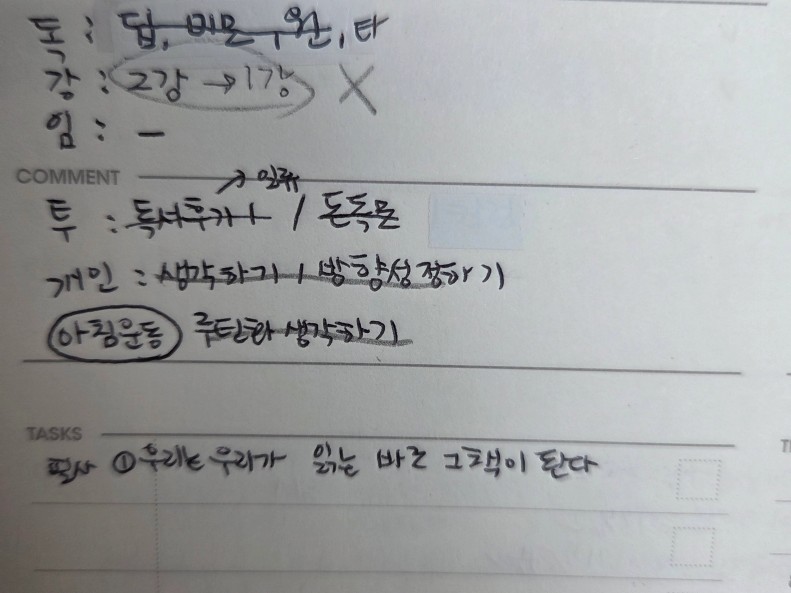 톡 : 답, 비문, 원, 타
강 : 2강 → 1강 X
임 : -
COMMENT
→ 일류
투 : 독서후기 / 돈독모
개인 : 생각하기 / 방향성 정하기
아침운동 루틴화 생각하기
TASKS
필사 ① 우리는 우리가 읽는 바로 그 책이 된다